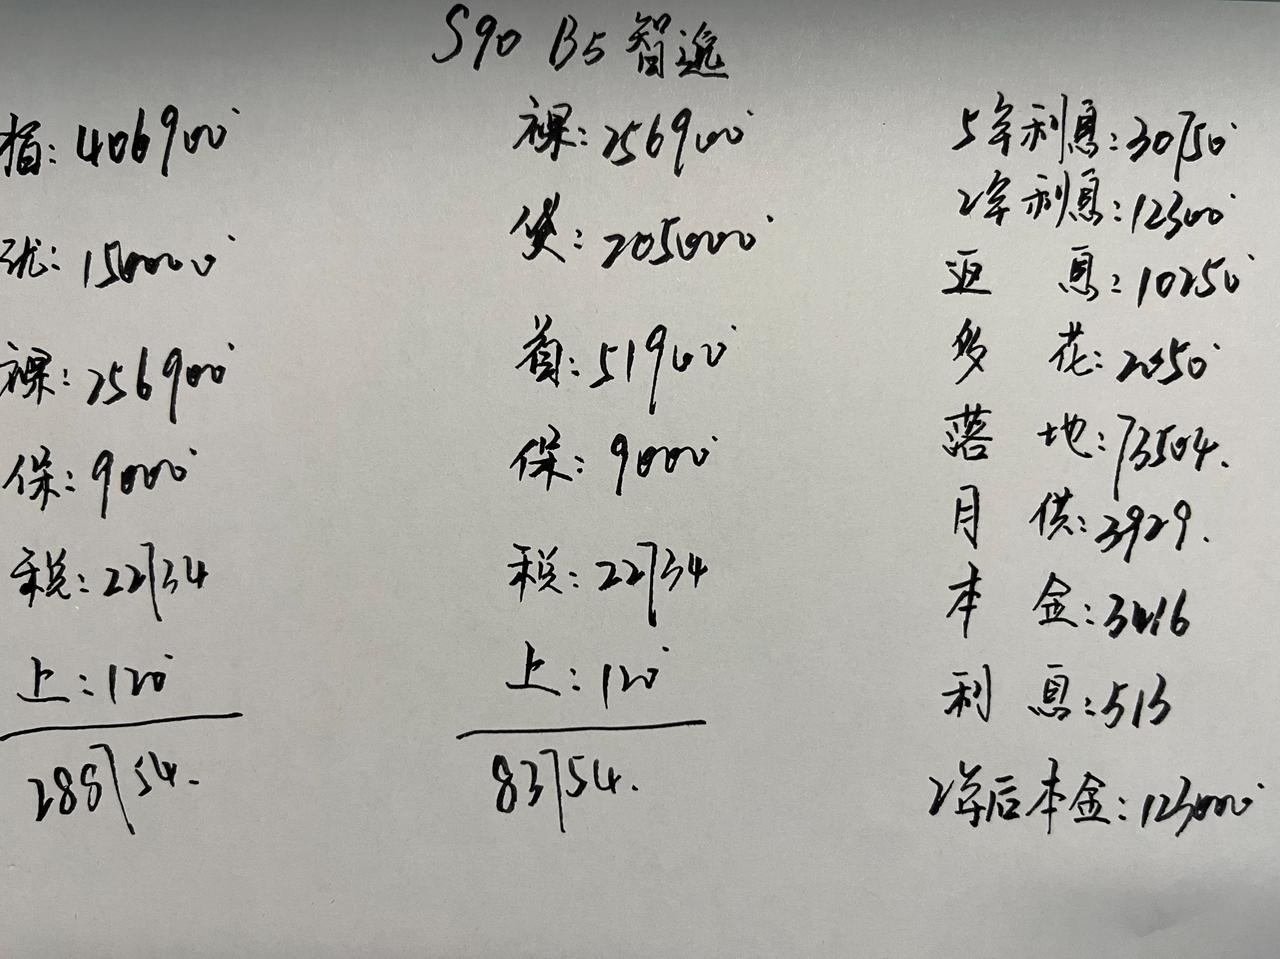 S90 B5 智远
指: 406900
优: 150000
裸: 256900
保: 9000
税: 22734
上: 120
288754.
裸: 256900
贷: 205000
首: 51900
保: 9000
税: 22734
上: 120
83754.
5年利息: 30750
2年利息: 12300
返 息: 10250
多 花: 2050
落 地: 73504.
月 供: 3929.
本 金: 3416
利 息: 513
2年后本金: 123000